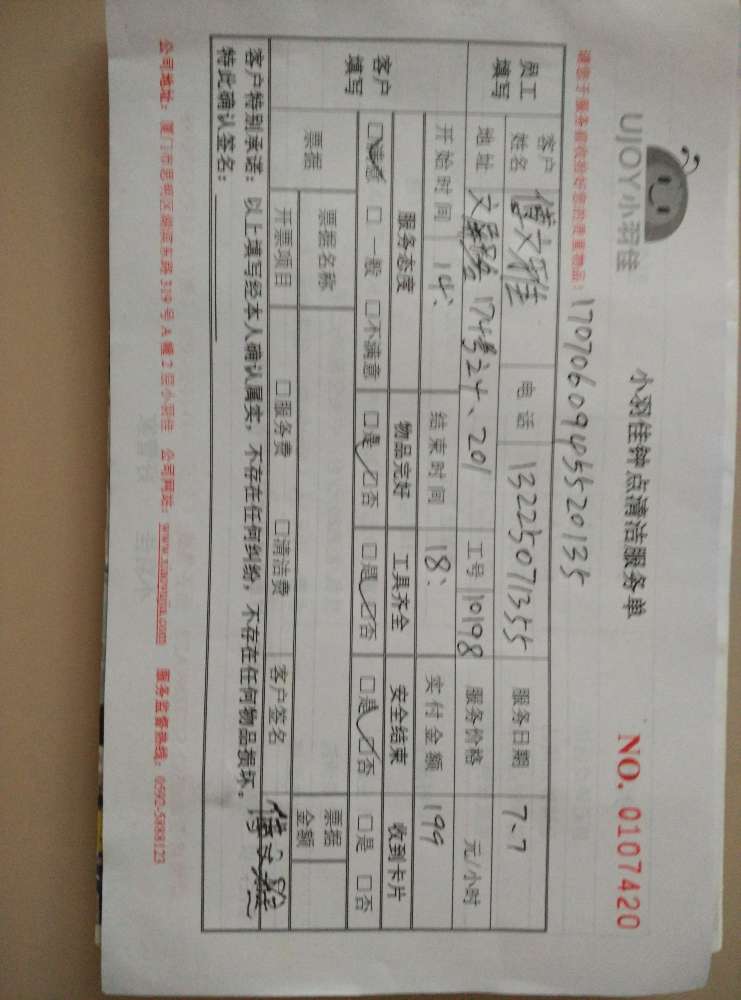 UJOY小羽佳
小羽佳钟点清洁服务单
NO. 0107420
请您于服务前收拾好您的贵重物品!
17070609455520135
员工填写
客户姓名 傅文雅 电话 13225071355 服务日期 7、7
地址 174号之十、201 工号 10198 服务价格 元/小时
开始时间 14: 结束时间 18: 实付金额 199
客户填写
服务态度 物品完好 工具齐全 安全结束 收到卡片
□满意 □一般 □不满意 □是 □否 □是 □否 □是 □否 □是 □否
票据 票据名称 票据金额
开票项目 □服务费 □清洁费 客户签名 傅文雅
客户特别承诺:以上填写经本人确认属实,不存在任何纠纷,不存在任何物品损坏。
特此确认签名:
公司地址:厦门市思明区湖滨东路319号A幢2层小羽佳 公司网站:www.xiaoyujia.com 服务监督热线:0592-5888123